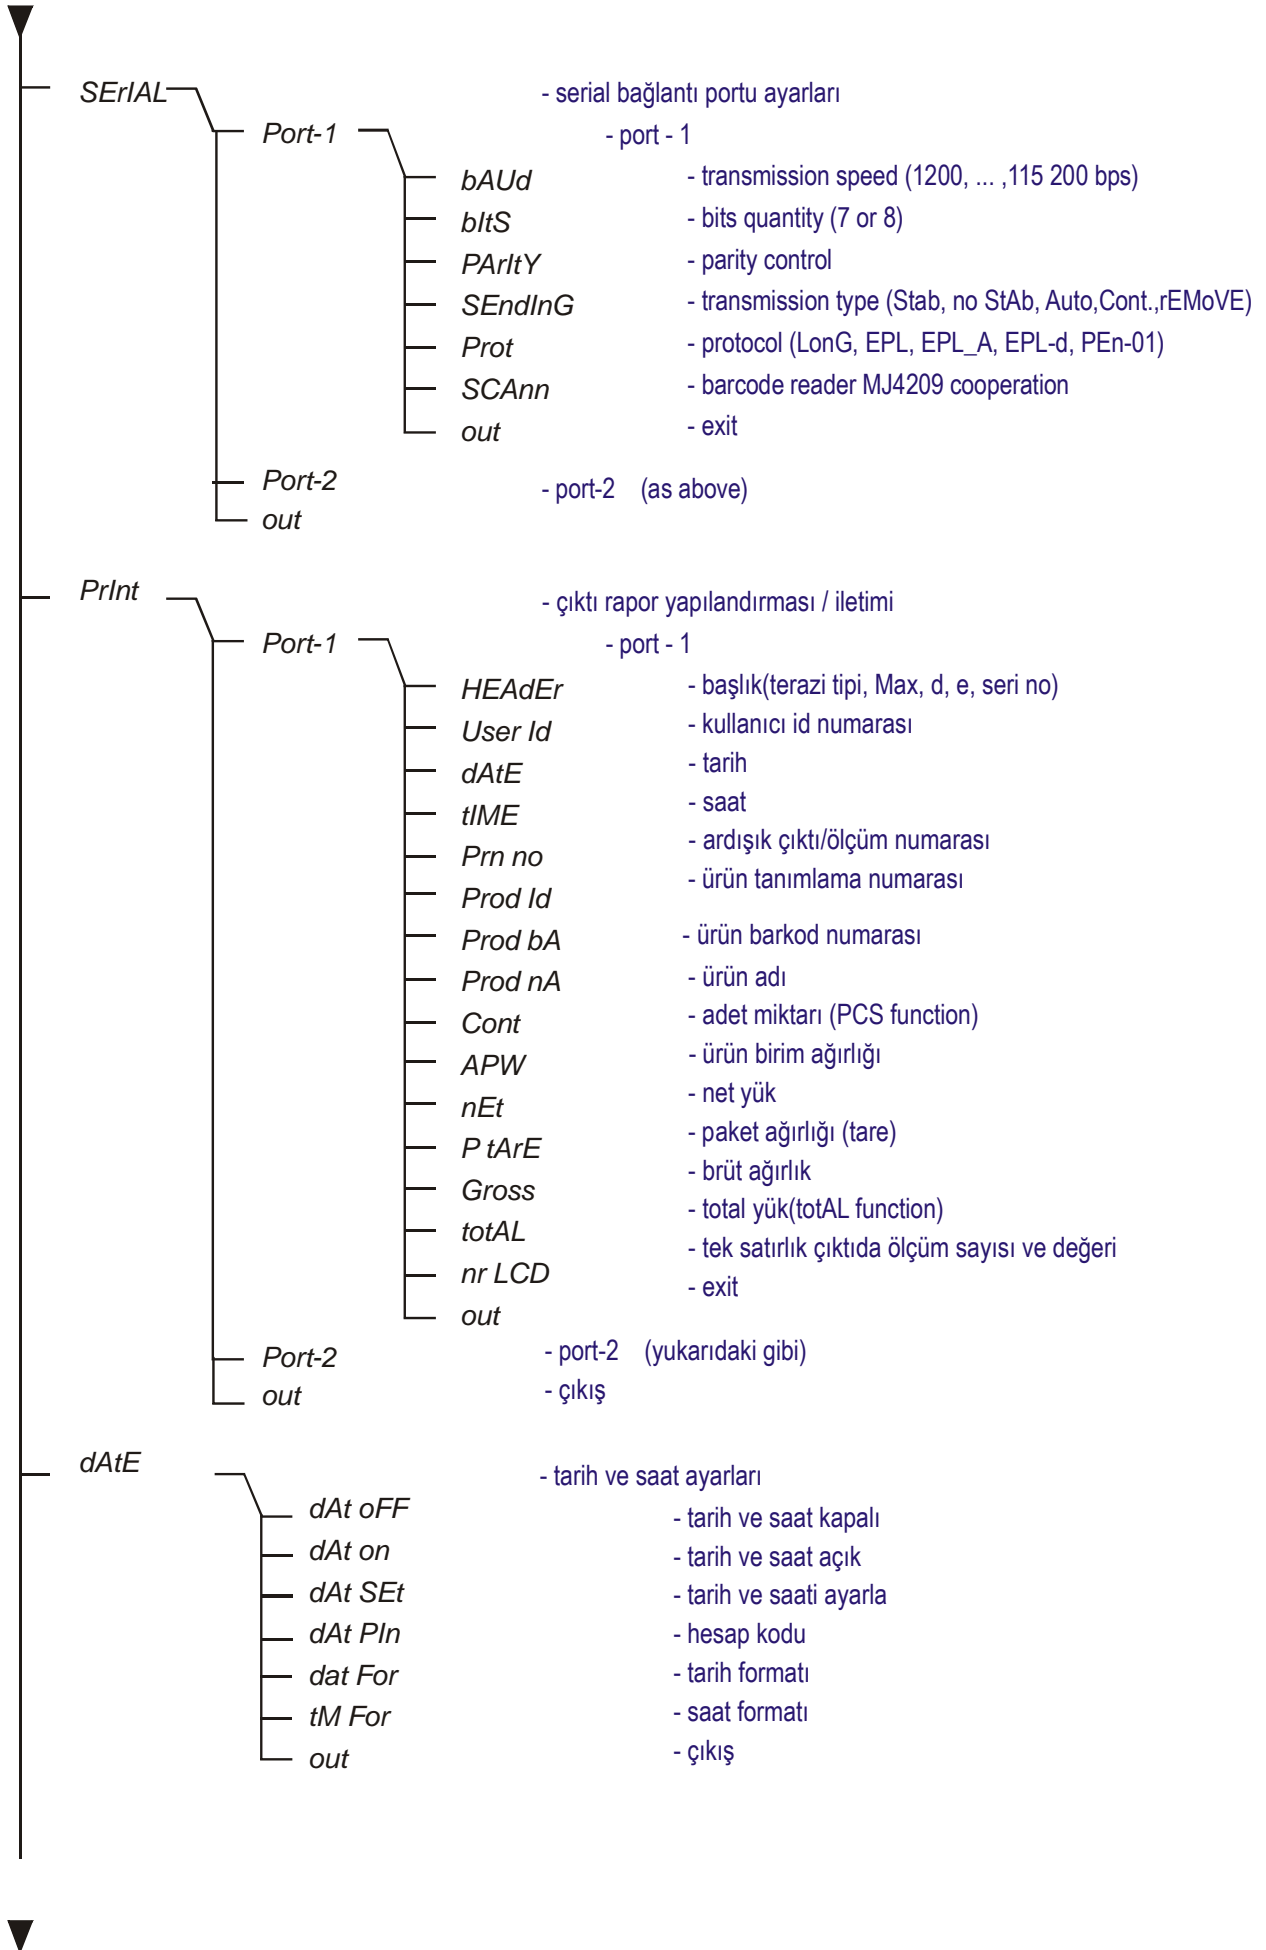 SErIAL - serial bağlantı portu ayarları
Port-1 - port - 1
bAUd - transmission speed (1200, ... ,115 200 bps)
bItS - bits quantity (7 or 8)
PArItY - parity control
SEndInG - transmission type (Stab, no StAb, Auto,Cont.,rEMoVE)
Prot - protocol (LonG, EPL, EPL_A, EPL-d, PEn-01)
SCAnn - barcode reader MJ4209 cooperation
out - exit
Port-2 - port-2 (as above)
out
PrInt - çıktı rapor yapılandırması / iletimi
Port-1 - port - 1
HEAdEr - başlık(terazi tipi, Max, d, e, seri no)
User Id - kullanıcı id numarası
dAtE - tarih
tIME - saat
Prn no - ardışık çıktı/ölçüm numarası
Prod Id - ürün tanımlama numarası
Prod bA - ürün barkod numarası
Prod nA - ürün adı
Cont - adet miktarı (PCS function)
APW - ürün birim ağırlığı
nEt - net yük
P tArE - paket ağırlığı (tare)
Gross - brüt ağırlık
totAL - total yük(totAL function)
nr LCD - tek satırlık çıktıda ölçüm sayısı ve değeri
out - exit
Port-2 - port-2 (yukarıdaki gibi)
out - çıkış
dAtE - tarih ve saat ayarları
dAt oFF - tarih ve saat kapalı
dAt on - tarih ve saat açık
dAt SEt - tarih ve saati ayarla
dAt PIn - hesap kodu
dat For - tarih formatı
tM For - saat formatı
out - çıkış